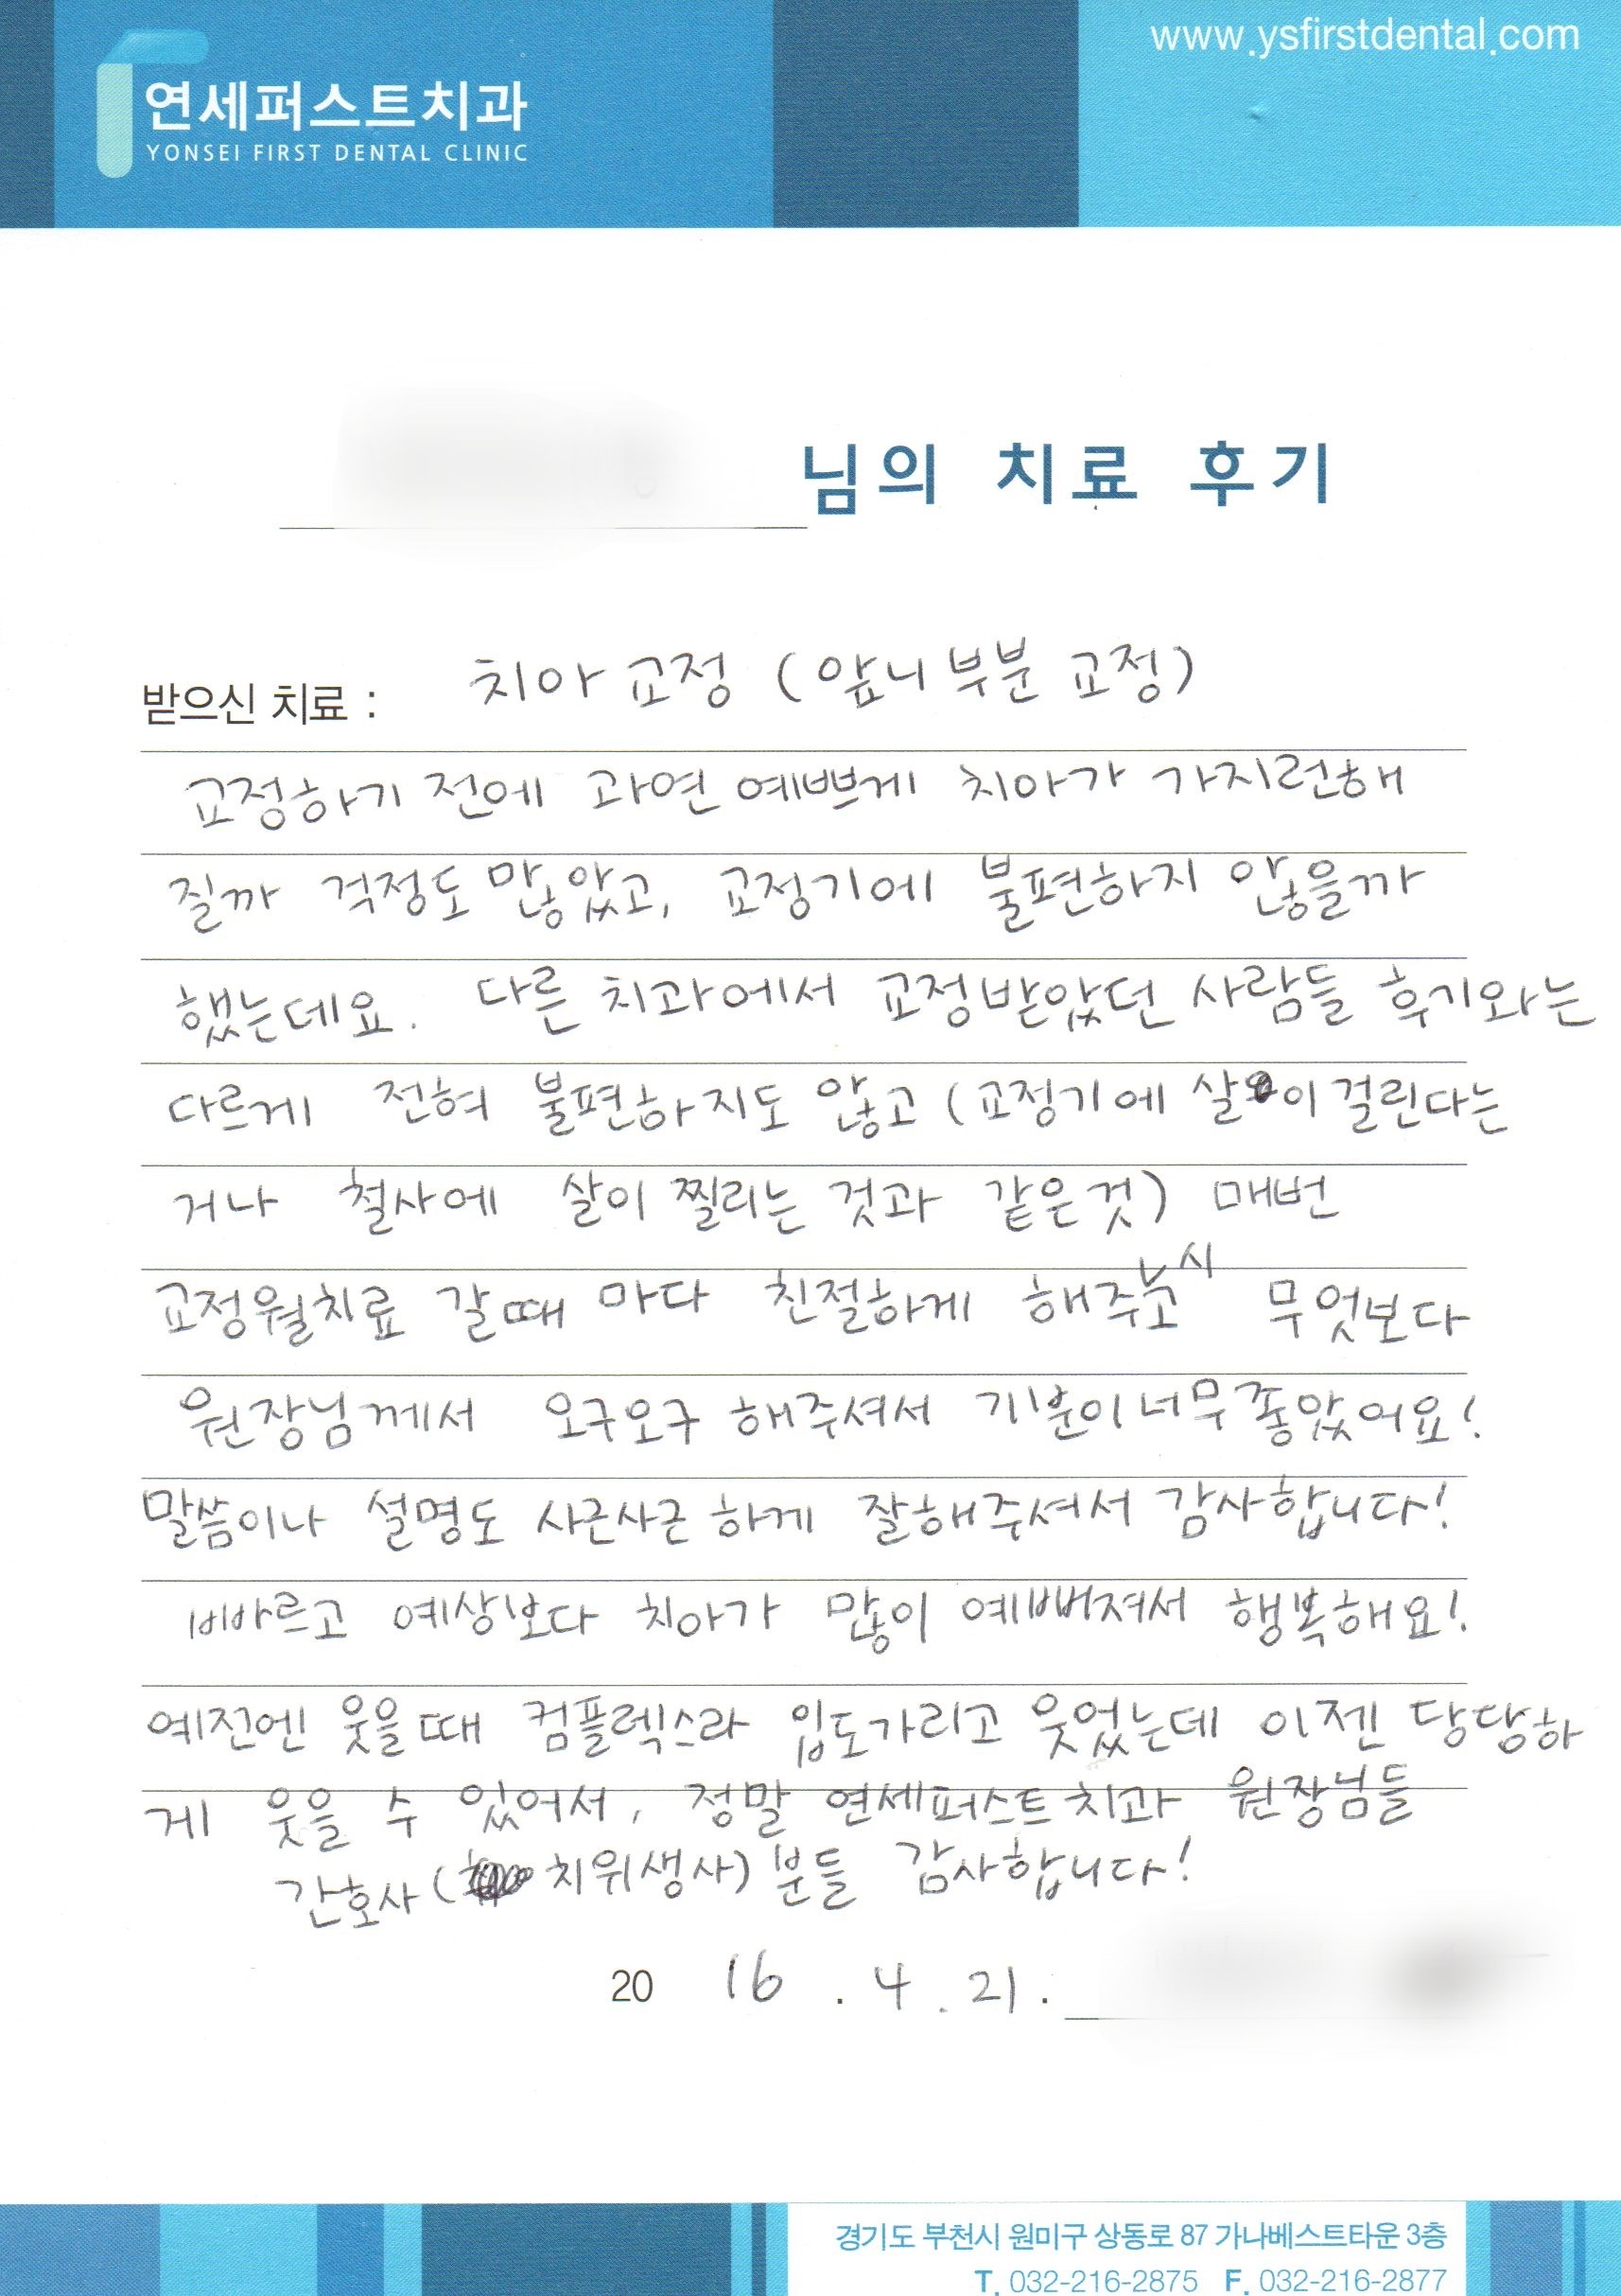 www.ysfirstdental.com
연세퍼스트치과
YONSEI FIRST DENTAL CLINIC
님의 치료 후기
받으신 치료 : 치아 교정 (앞니 부분 교정)
교정하기 전에 과연 예쁘게 치아가 가지런해
질까 걱정도 많았고, 교정기에 불편하지 않을까
했는데요. 다른 치과에서 교정받았던 사람들 후기와는
다르게 전혀 불편하지도 않고 (교정기에 살이 걸린다는
거나 철사에 살이 찔리는 것과 같은것) 매번
교정월치료 갈때 마다 친절하게 해주시고 무엇보다
원장님께서 오구오구 해주셔서 기분이 너무 좋았어요!
말씀이나 설명도 사근사근 하게 잘해주셔서 감사합니다!
빠르고 예상보다 치아가 많이 예뻐져서 행복해요!
예전엔 웃을때 컴플렉스라 입도가리고 웃었는데 이젠 당당하
게 웃을 수 있어서, 정말 연세퍼스트치과 원장님들
간호사 (치위생사) 분들 감사합니다!
20 16 . 4 . 21 .
경기도 부천시 원미구 상동로 87 가나베스트타운 3층
T. 032-216-2875 F. 032-216-2877